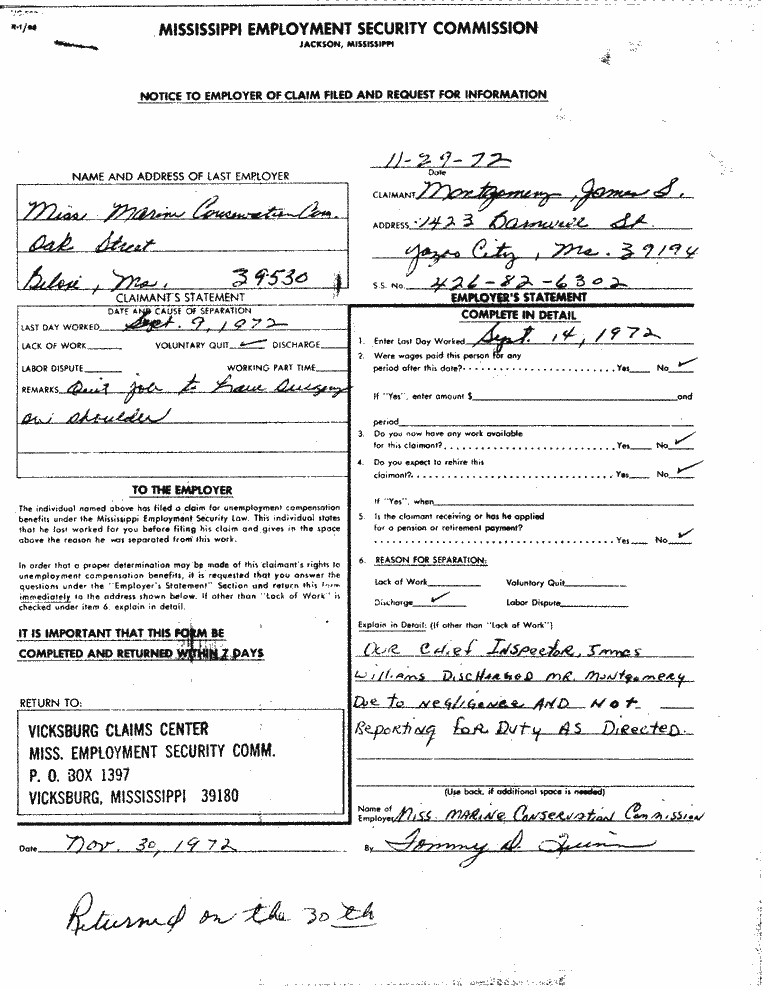 R-1/66
MISSISSIPPI EMPLOYMENT SECURITY COMMISSION
JACKSON, MISSISSIPPI
NOTICE TO EMPLOYER OF CLAIM FILED AND REQUEST FOR INFORMATION
11-29-72
Date
NAME AND ADDRESS OF LAST EMPLOYER
Miss Marine Conservation Com.
Oak Street
Biloxi, Ms. 39530
CLAIMANT Montgomery, James S.
ADDRESS 1423 St.
Yazoo City, Ms. 39194
S.S. No. 426-82-6302
CLAIMANT'S STATEMENT
DATE AND CAUSE OF SEPARATION
LAST DAY WORKED Sept. 9, 1972
LACK OF WORK VOLUNTARY QUIT ✓ DISCHARGE
LABOR DISPUTE WORKING PART TIME
REMARKS Quit job to have surgery
on shoulder
TO THE EMPLOYER
The individual named above has filed a claim for unemployment compensation
benefits under the Mississippi Employment Security Law. This individual states
that he last worked for you before filing his claim and gives in the space
above the reason he was separated from this work.
In order that a proper determination may be made of this claimant's rights to
unemployment compensation benefits, it is requested that you answer the
questions under the "Employer's Statement" Section and return this form
immediately to the address shown below. If other than "Lack of Work" is
checked under item 6. explain in detail.
IT IS IMPORTANT THAT THIS FORM BE
COMPLETED AND RETURNED WITHIN 7 DAYS
RETURN TO:
VICKSBURG CLAIMS CENTER
MISS. EMPLOYMENT SECURITY COMM.
P. O. BOX 1397
VICKSBURG, MISSISSIPPI 39180
Date Nov. 30, 1972
EMPLOYER'S STATEMENT
COMPLETE IN DETAIL
1. Enter Last Day Worked Sept. 14, 1972
2. Were wages paid this person for any
period after this date? Yes No ✓
If "Yes", enter amount $ and
period
3. Do you now have any work available
for this claimant? Yes No ✓
4. Do you expect to rehire this
claimant? Yes No ✓
If "Yes", when
5. Is the claimant receiving or has he applied
for a pension or retirement payment?
Yes No ✓
6. REASON FOR SEPARATION:
Lack of Work Voluntary Quit
Discharge ✓ Labor Dispute
Explain in Detail: (If other than "Lack of Work")
Our Chief Inspector, James
Williams Discharged Mr. Montgomery
Due to negligence AND Not
Reporting for Duty AS Directed.
(Use back, if additional space is needed)
Name of
Employer Miss. Marine Conservation Commission
By Tommy D.
Returned on the 30th